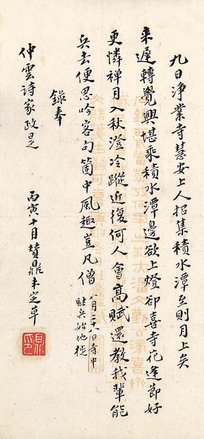 九日淨業寺慧安上人招集積水潭至則月上矣
來遲轉覺興堪乘積水潭邊欲上燈卻喜寺花逢節好
更憐禪月入秋澄冷蹤近復何人會高賦還教我輩能
兵去便思吟客句箇中風趣豈凡僧 八月二十八日寺中
駐兵始他徙
錄奉
仲雲詩家政是
丙寅十月